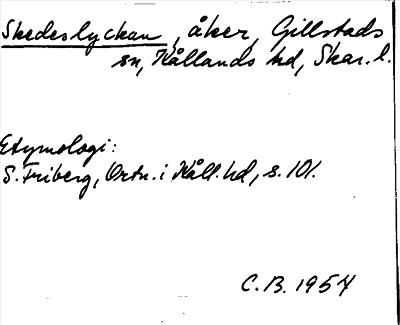 Skedeslyckan, åker, Gillstads
sn, Kållands hd, Skar. l.
Etymologi:
S. Friberg, Ortn. i Kåll. hd, s. 101.
C.B. 1954